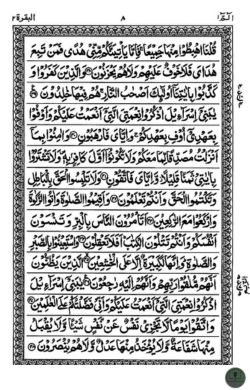 البقرة ٢
٨
الٓمّٓ ١
قُلْنَا اهْبِطُوْا مِنْهَا جَمِيْعًا فَاِمَّا يَاْتِيَنَّكُمْ مِّنِّيْ هُدًى فَمَنْ تَبِعَ
هُدَايَ فَلَا خَوْفٌ عَلَيْهِمْ وَلَا هُمْ يَحْزَنُوْنَ وَالَّذِيْنَ كَفَرُوْا وَ
كَذَّبُوْا بِاٰيٰتِنَا اُولٰٓئِكَ اَصْحٰبُ النَّارِ هُمْ فِيْهَا خٰلِدُوْنَ
يٰبَنِيْٓ اِسْرَآءِيْلَ اذْكُرُوْا نِعْمَتِيَ الَّتِيْٓ اَنْعَمْتُ عَلَيْكُمْ وَاَوْفُوْا
بِعَهْدِيْٓ اُوْفِ بِعَهْدِكُمْ وَاِيَّايَ فَارْهَبُوْنِ وَاٰمِنُوْا بِمَآ
اَنْزَلْتُ مُصَدِّقًا لِّمَا مَعَكُمْ وَلَا تَكُوْنُوْٓا اَوَّلَ كَافِرٍۭ بِهٖ وَلَا تَشْتَرُوْا
بِاٰيٰتِيْ ثَمَنًا قَلِيْلًا وَّاِيَّايَ فَاتَّقُوْنِ وَلَا تَلْبِسُوا الْحَقَّ بِالْبَاطِلِ
وَتَكْتُمُوا الْحَقَّ وَاَنْتُمْ تَعْلَمُوْنَ وَاَقِيْمُوا الصَّلٰوةَ وَاٰتُوا الزَّكٰوةَ
وَارْكَعُوْا مَعَ الرّٰكِعِيْنَ اَتَاْمُرُوْنَ النَّاسَ بِالْبِرِّ وَتَنْسَوْنَ
اَنْفُسَكُمْ وَاَنْتُمْ تَتْلُوْنَ الْكِتٰبَ اَفَلَا تَعْقِلُوْنَ وَاسْتَعِيْنُوْا بِالصَّبْرِ
وَالصَّلٰوةِ وَاِنَّهَا لَكَبِيْرَةٌ اِلَّا عَلَى الْخٰشِعِيْنَ الَّذِيْنَ يَظُنُّوْنَ
اَنَّهُمْ مُّلٰقُوْا رَبِّهِمْ وَاَنَّهُمْ اِلَيْهِ رٰجِعُوْنَ يٰبَنِيْٓ اِسْرَآءِيْلَ
اذْكُرُوْا نِعْمَتِيَ الَّتِيْٓ اَنْعَمْتُ عَلَيْكُمْ وَاَنِّيْ فَضَّلْتُكُمْ عَلَى الْعٰلَمِيْنَ
وَاتَّقُوْا يَوْمًا لَّا تَجْزِيْ نَفْسٌ عَنْ نَّفْسٍ شَيْئًا وَّلَا يُقْبَلُ
مِنْهَا شَفَاعَةٌ وَّلَا يُؤْخَذُ مِنْهَا عَدْلٌ وَّلَا هُمْ يُنْصَرُوْنَ